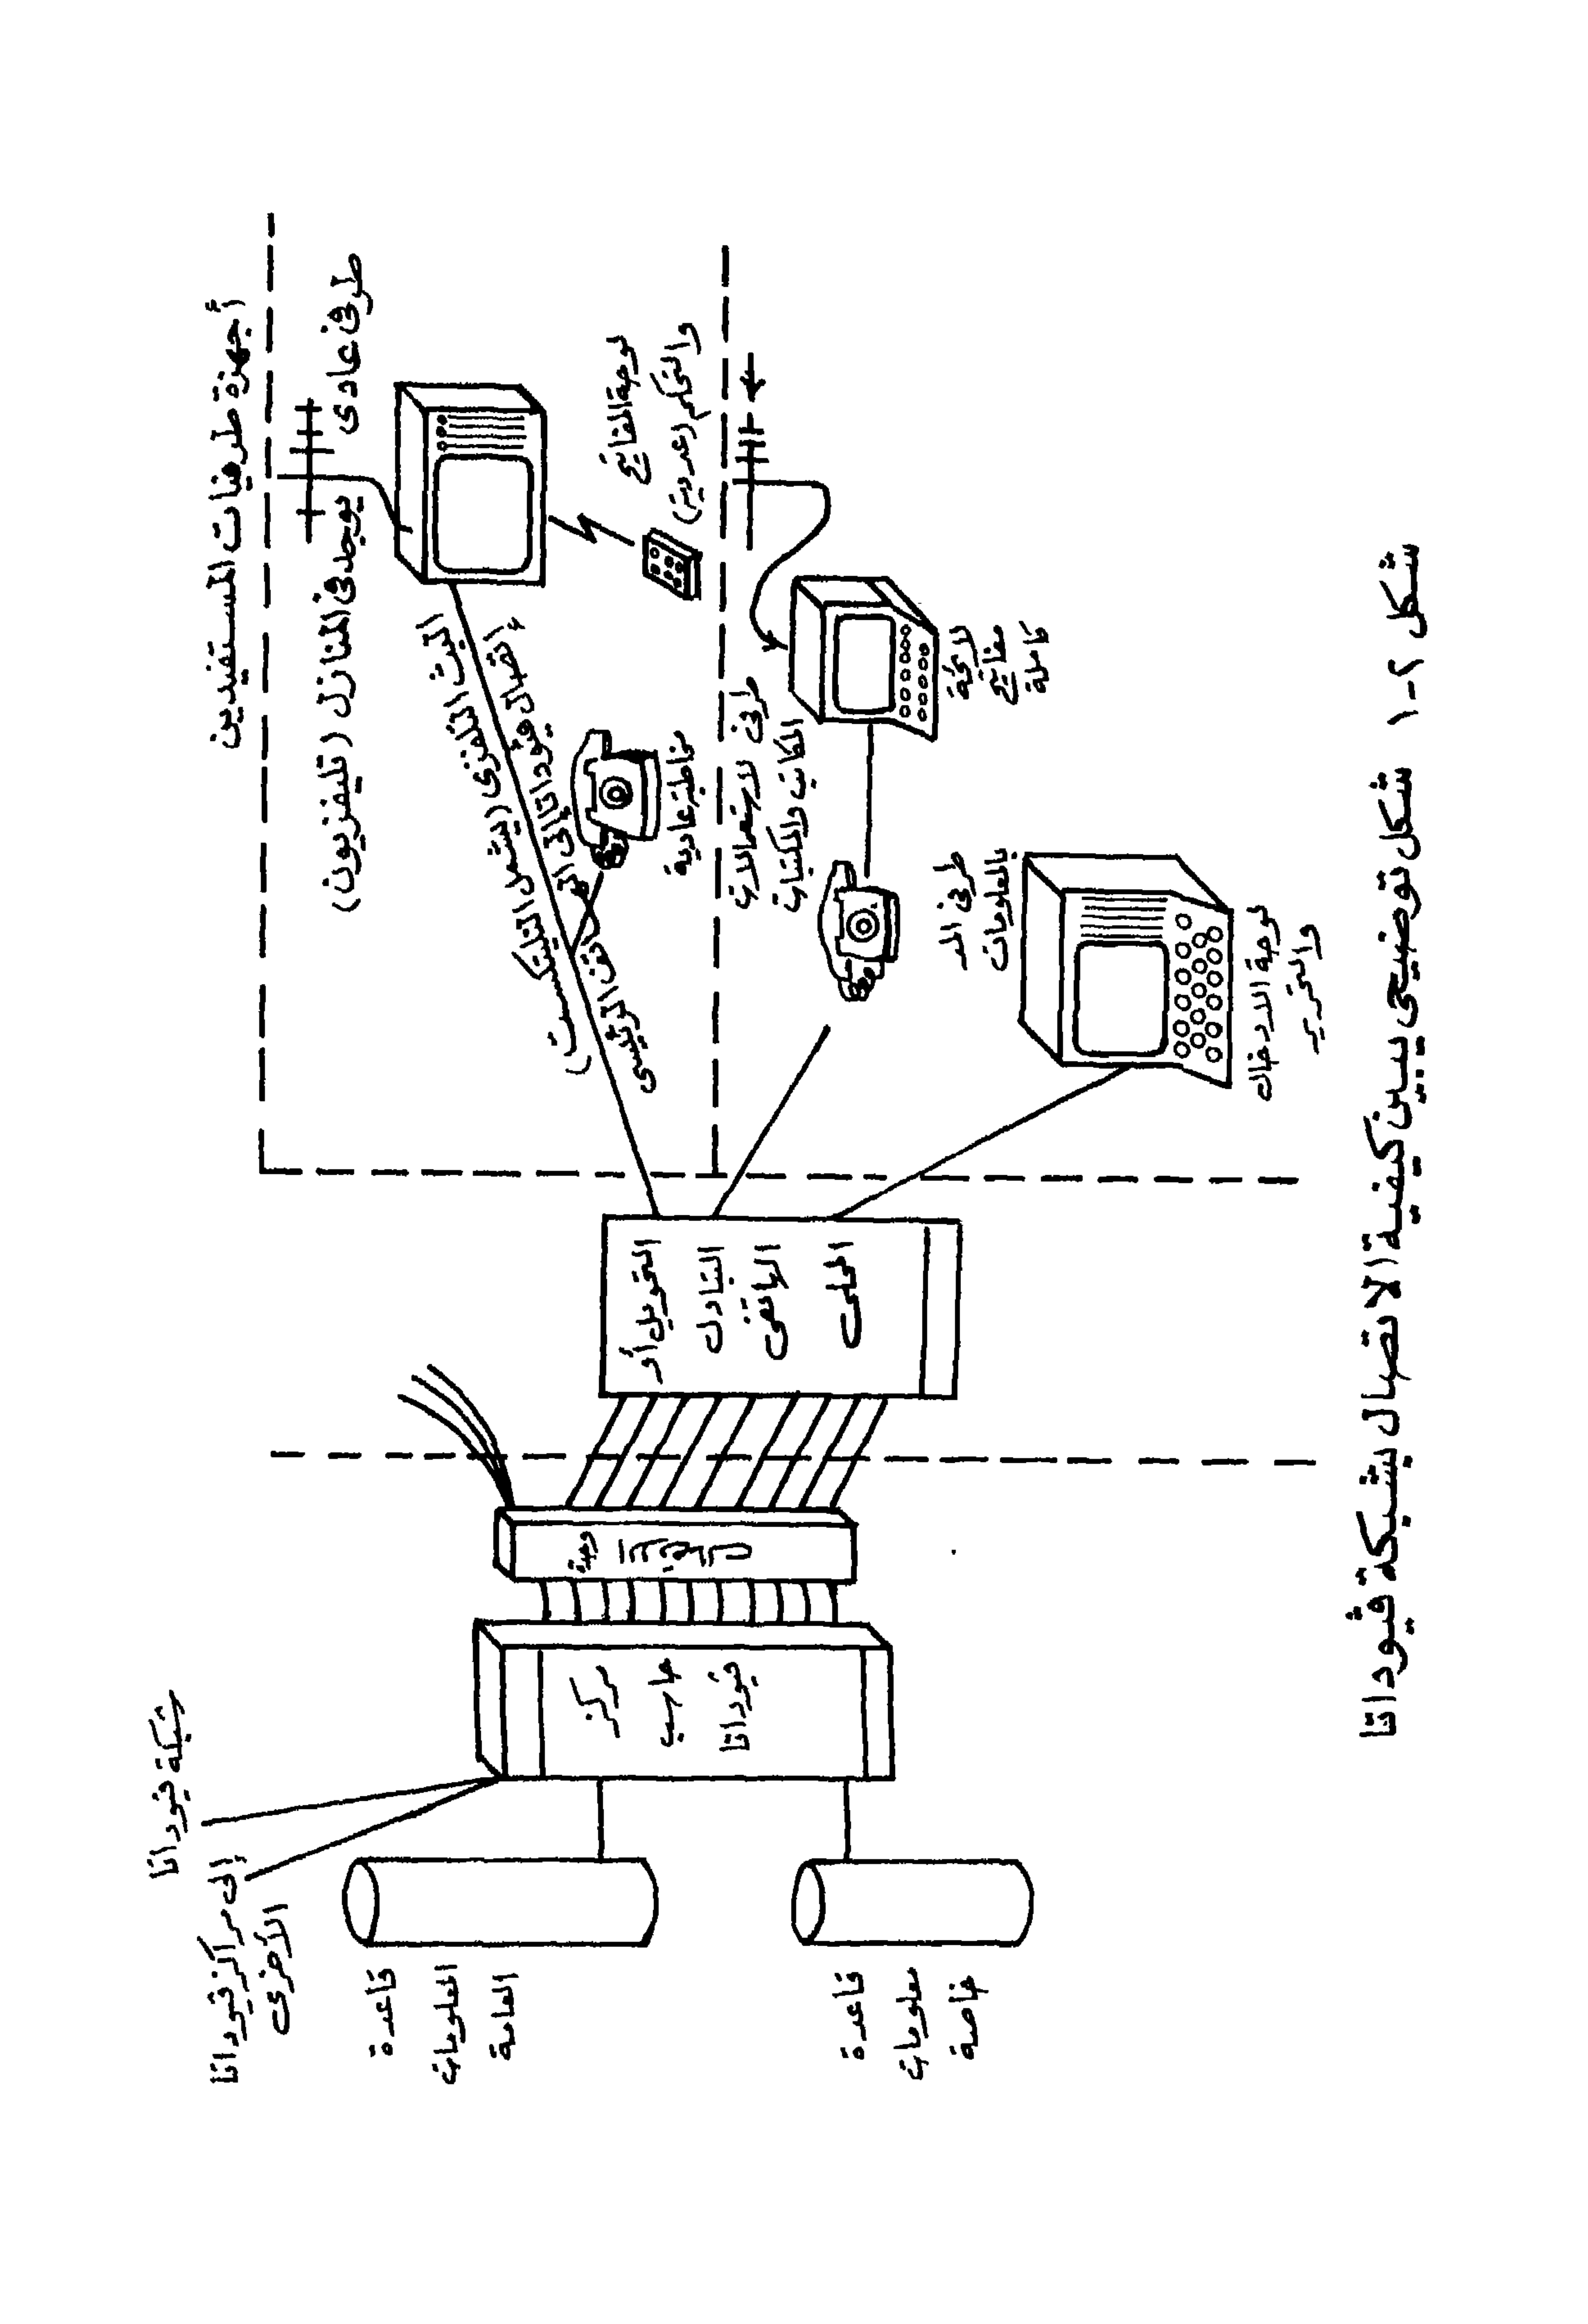 أجهزة طرفيات المستفيدين
طرفى عادى
يوجد فى المنازل (تليفزيون)
البث التلفزى (يشمل التليتكست)
إتصال فيوداتا إلى
الرئيسى
لوحة المفاتيح
والتحكم (عددية)
مخاطبة عادية
طرفى لاستعمالات
المكاتب والمكتبات
لائحة
مفاتيح
كاملة
طرفى المد
بالمعلومات
لوحة الادخال
والتحرير
التحويل أو
التبادل
الهاتفى
المحلى
مركز
حاسب
فيوداتا
شبكة فيوداتا
إلى مراكز فيوداتا
الأخرى
قاعدة
المعلومات
العامة
قاعدة
معلومات
خاصة
شكل ٢-١ شكل توضيحى يبين كيفية الاتصال بشبكة فيوداتا